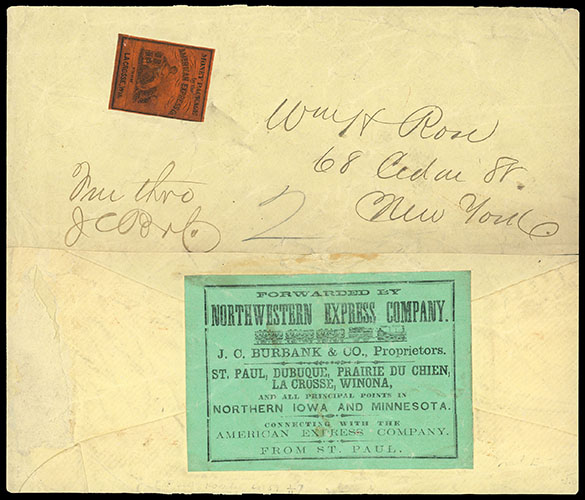 MONEY PACKAGE
AMERICAN EXPRESS CO.
FROM
LA CROSSE, WIS.
Wm H Rose
68 Cedar St.
New York.
thro
J C B & Co.
2
FORWARDED BY
NORTHWESTERN EXPRESS COMPANY.
J. C. BURBANK & CO., Proprietors.
ST. PAUL, DUBUQUE, PRAIRIE DU CHIEN,
LA CROSSE, WINONA,
AND ALL PRINCIPAL POINTS IN
NORTHERN IOWA AND MINNESOTA.
CONNECTING WITH THE
AMERICAN EXPRESS COMPANY.
FROM ST. PAUL.